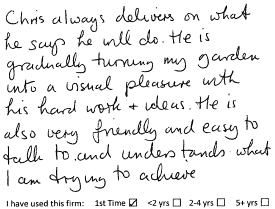 Chris always delivers on what
he says he will do. He is
gradually turning my garden
into a visual pleasure with
his hard work + ideas. He is
also very friendly and easy to
talk to and understands what
I am trying to achieve
I have used this firm: 1st Time ☑ <2 yrs ☐ 2-4 yrs ☐ 5+ yrs ☐